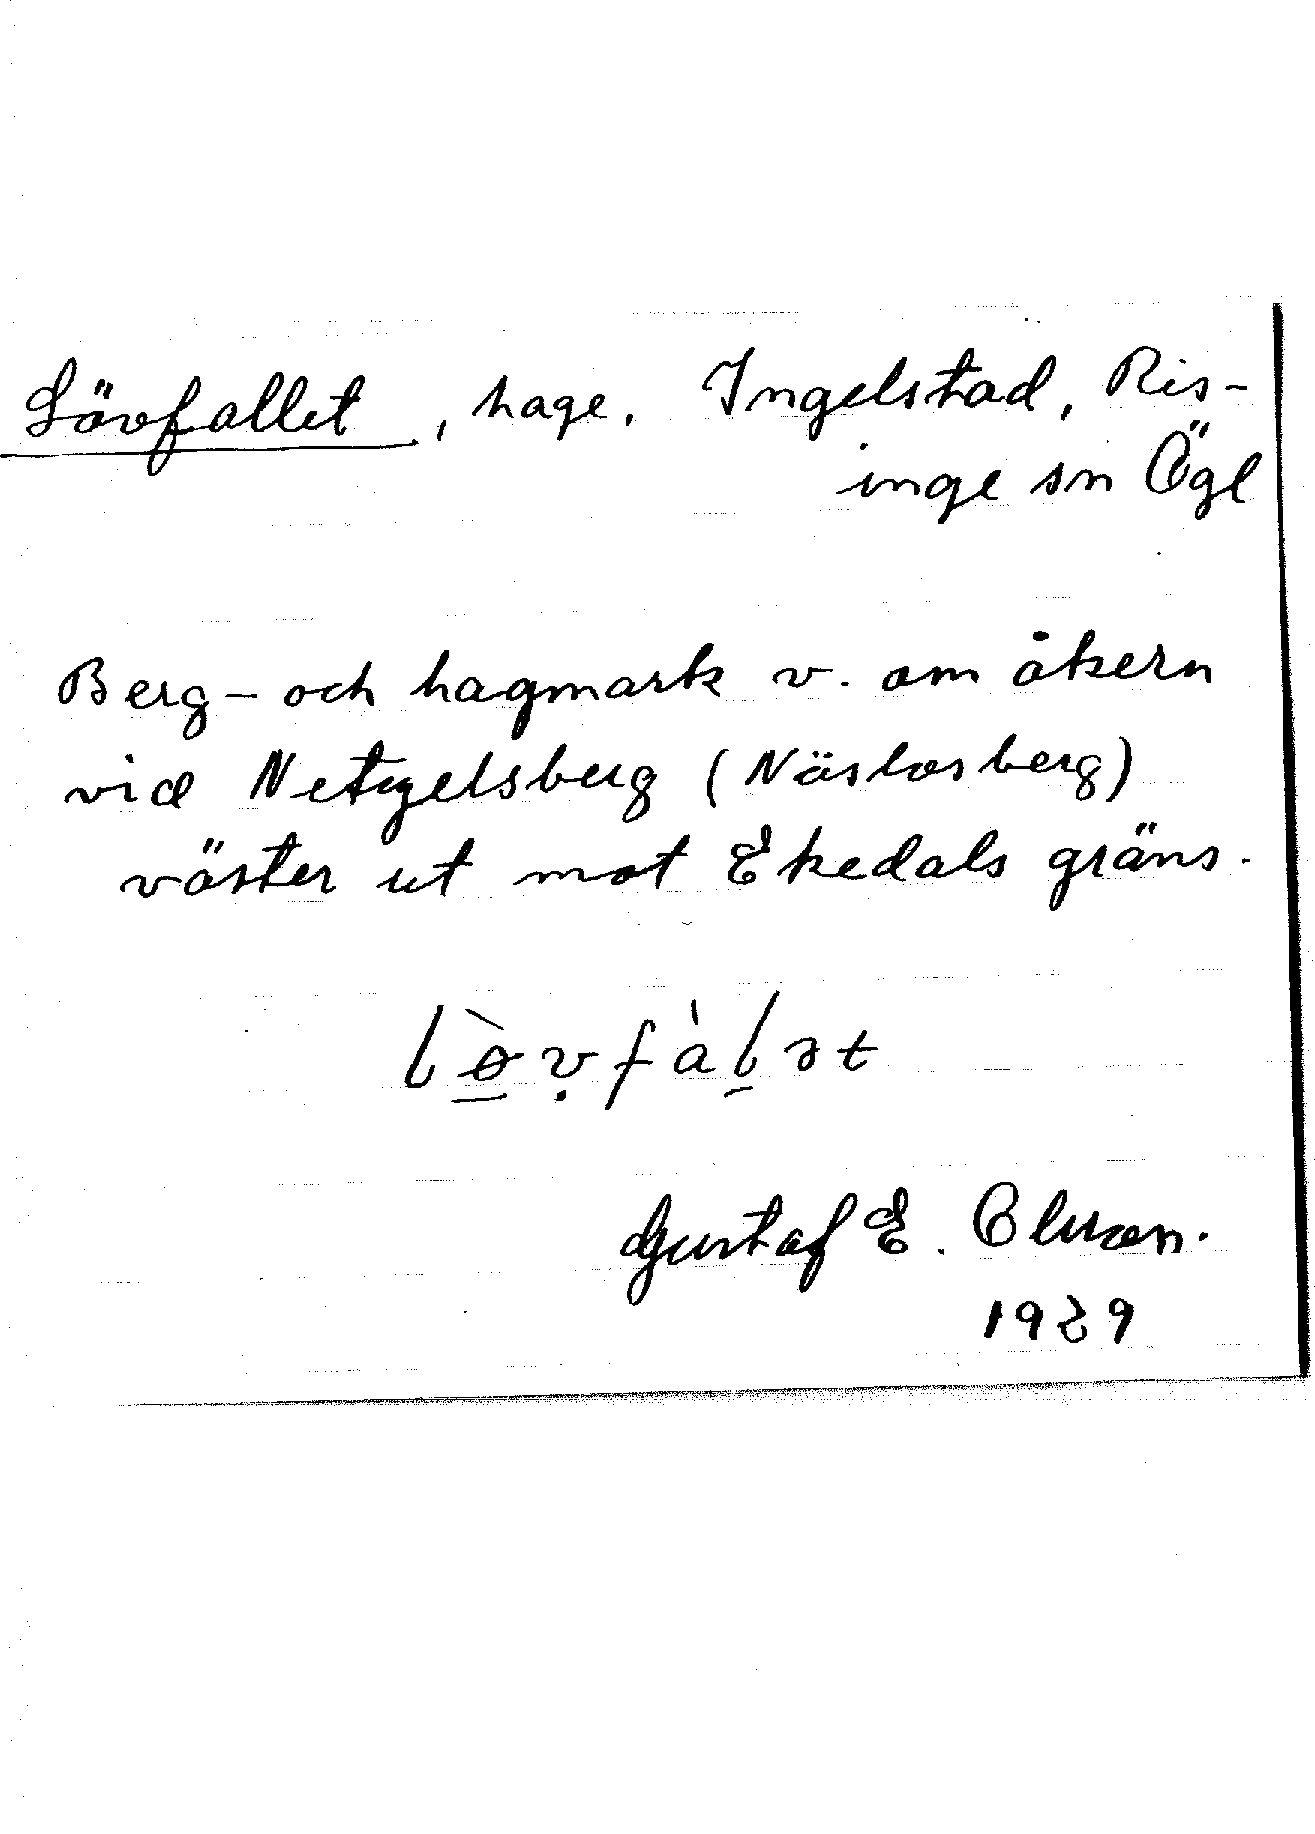 Lövfallet, hage. Ingelstad, Ris-
inge sn Ögl
Berg- och hagmark v. om åkern
vid Netzelsberg (Näslosberg)
väster ut mot Ekedals gräns.
lø̀vfàlət
Gustaf E. Olsson.
1929